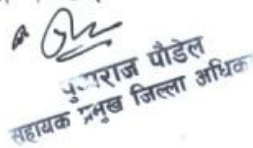 पौडेल
सहायक प्रमुख जिल्ला अधिका